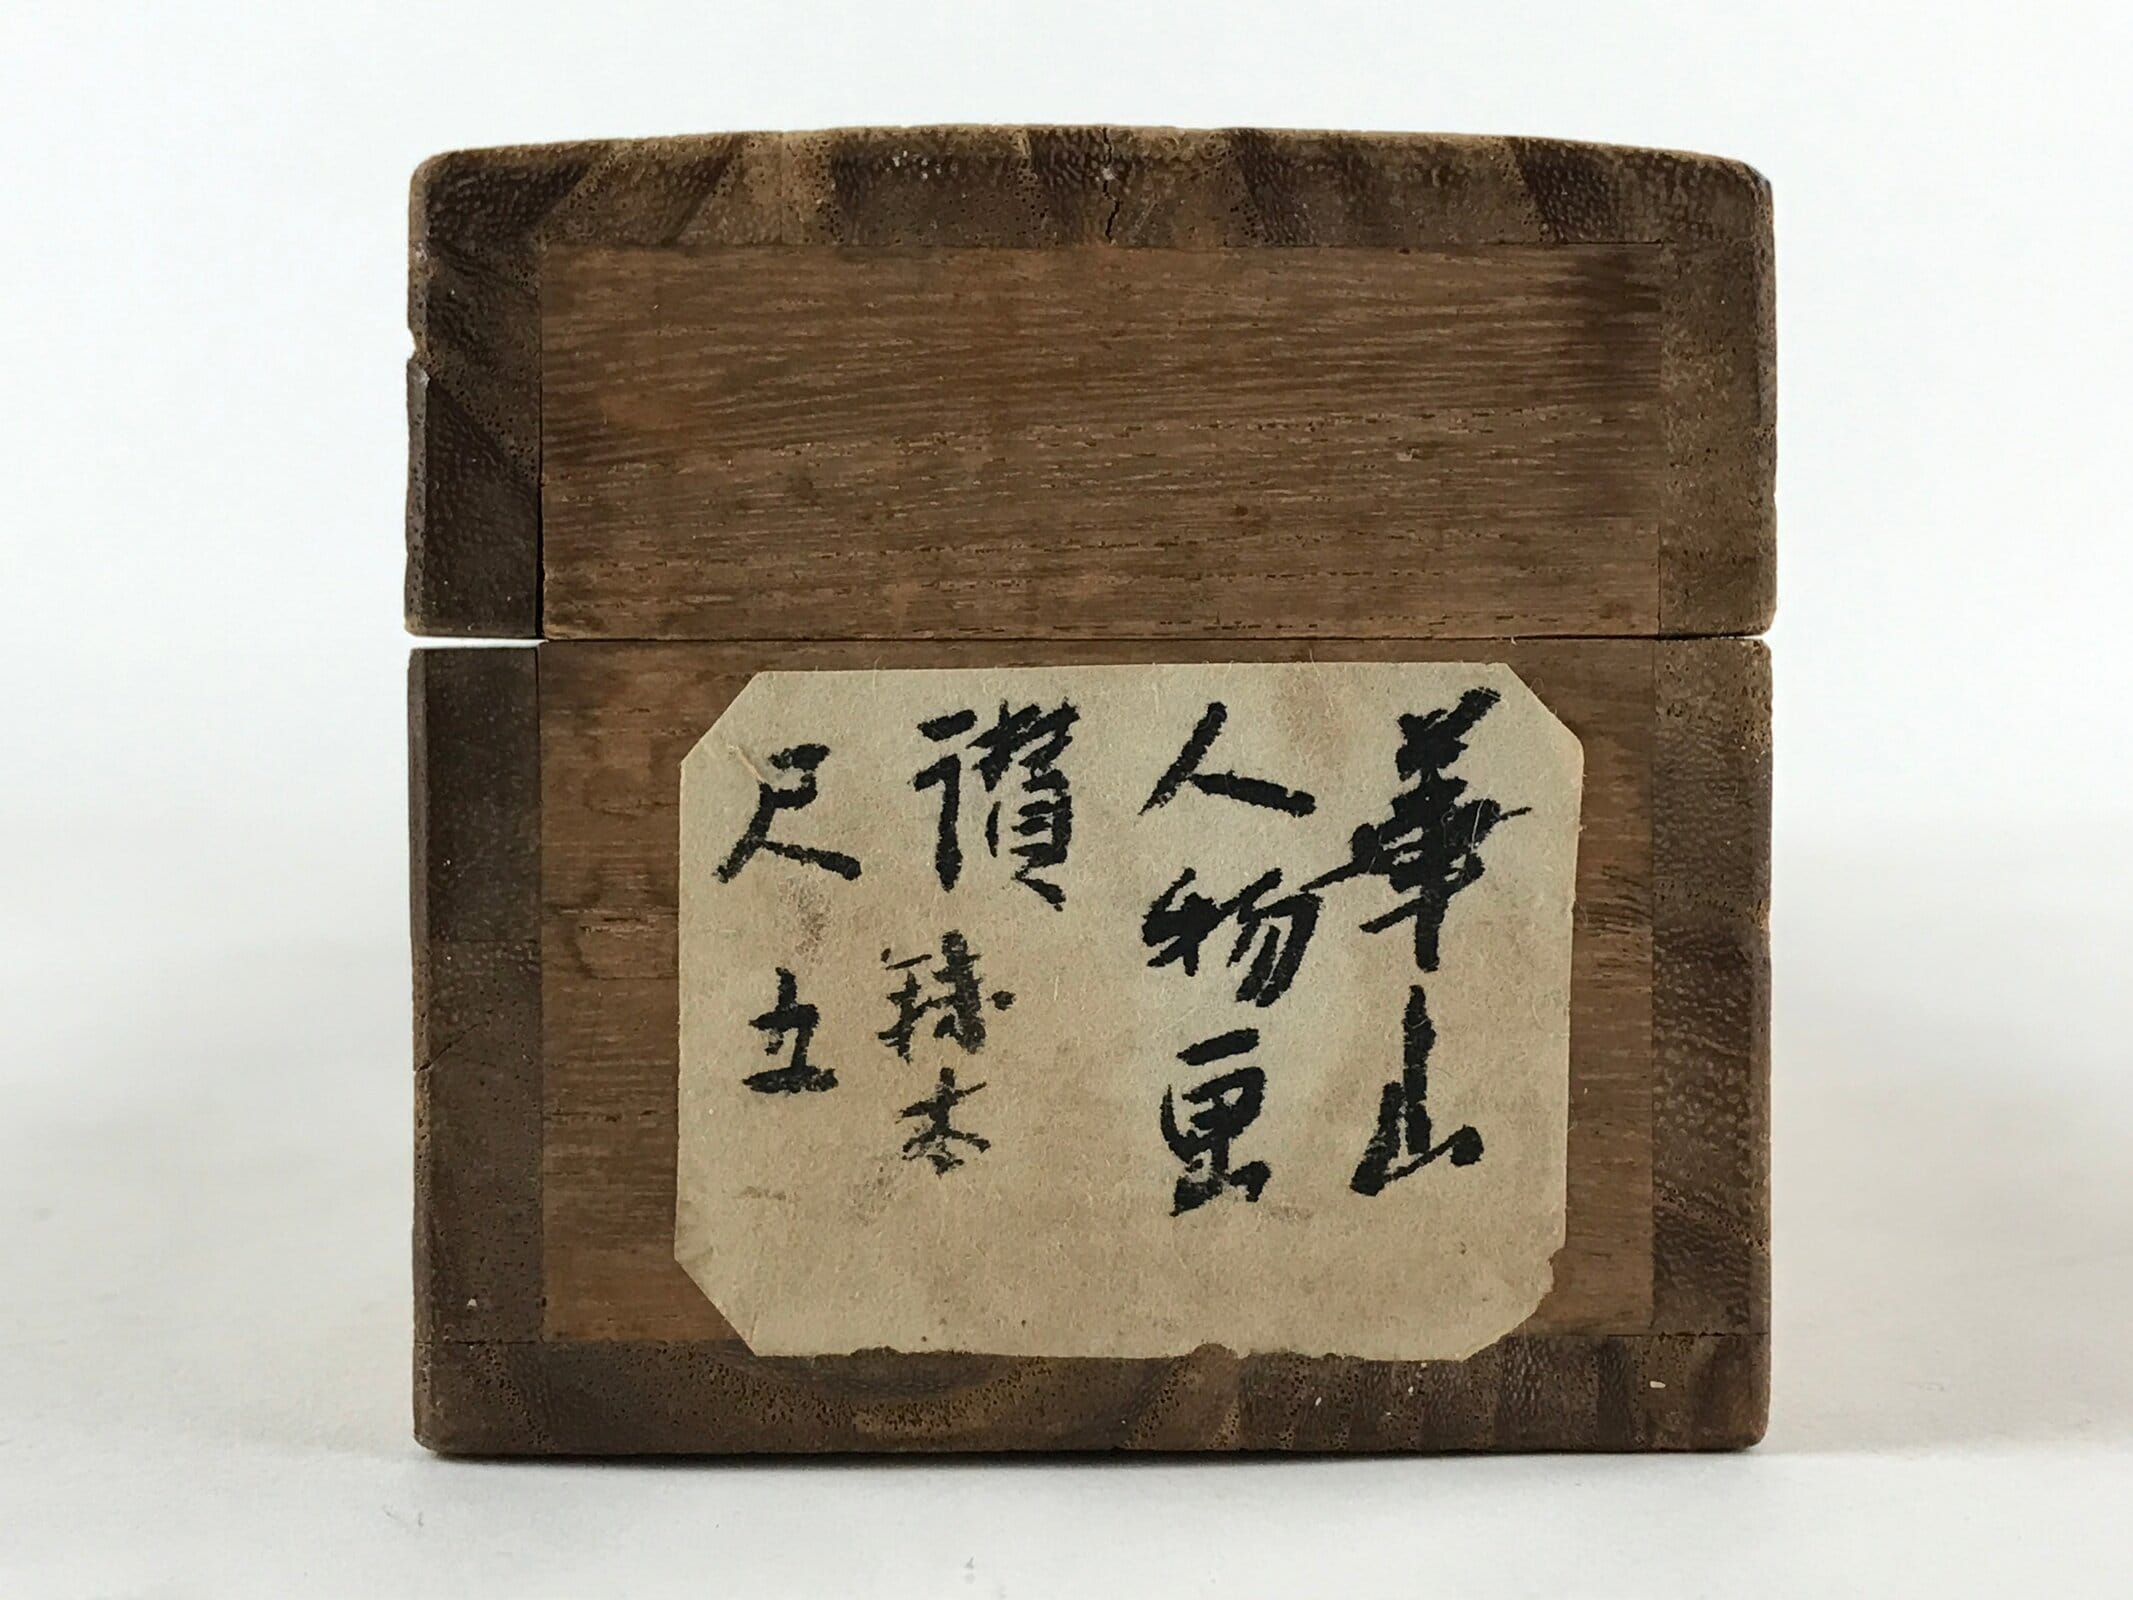 華山
人物画
讃 本
尺五